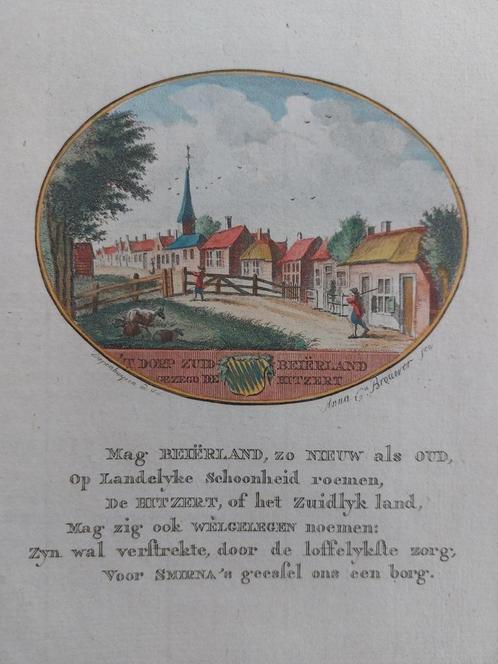 'T DORP ZUID BEIËRLAND
GEZEGD DE HITZERT
Anna Cª Brouwer fec
Mag BEIËRLAND, zo NIEUW als OUD,
Op Landelyke Schoonheid roemen,
De HITZERT, of het Zuidlyk land,
Mag zig ook WÈLGELEGEN noemen:
Zyn wal verſtrekte, door de loffelykſte zorg,
Voor SMIRNA's geeſſel ons een borg.